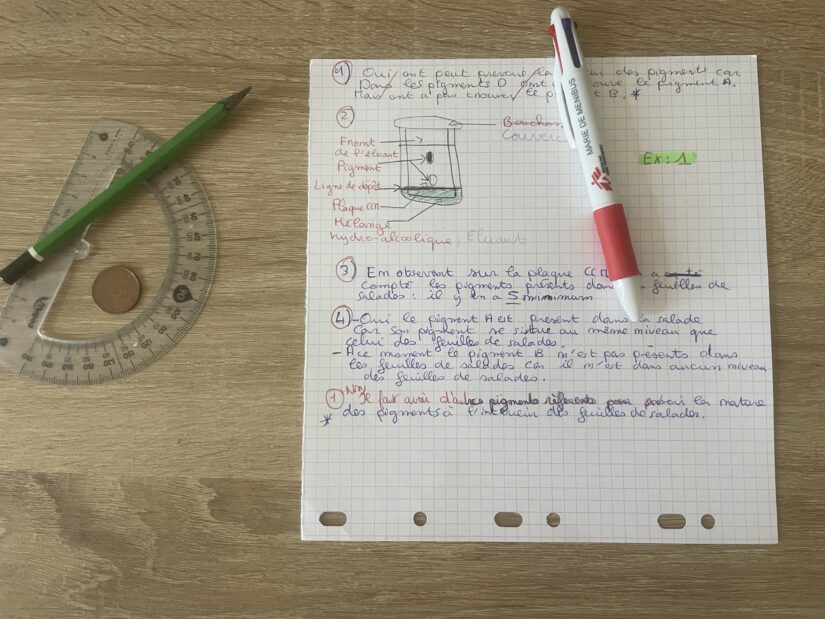 1) Oui ont peut prevoir la des pigments car
Dans les pigments D ont le pigment A.
Mais ont a pas trouver le B. *
2)
Bouchon
Couverc
Front
de l'éluant
Pigment
Ligne de dépôt
Plaque CCM
Mélange
hydro-alcoolique, Eluant
Ex: 1
MARIE DE MENIBUS
3) En observant sur la plaque CCM a
compté les pigments présents dans feuilles de
salades : il y en a 5 minimum
4) - Oui le pigment A est présent dans la salade
Car son pigment se situe au même niveau que
celui des feuilles de salades.
- A ce moment le pigment B n'est pas présents dans
les feuilles de salades car il n'est dans aucun niveau
des feuilles de salades.
1) Non Il faut avoir d'autres pigments réferents pour la nature
des pigments à l'intérieur des feuilles de salades.
*